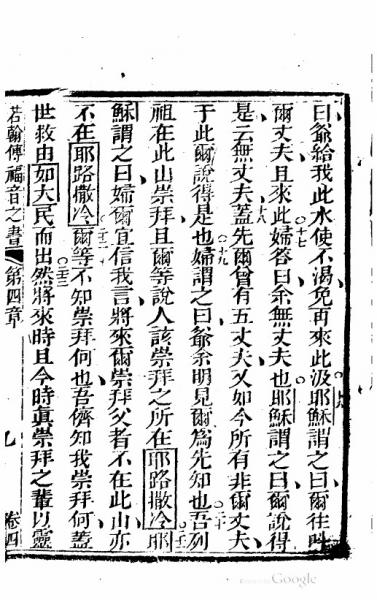 曰爺給我此水使不渴免再來此汲耶穌謂之曰爾往呼
爾丈夫且來此婦答曰余無丈夫也耶穌謂之曰爾說得
是云無丈夫蓋先爾曾有五丈夫又如今所有非爾丈夫
于此爾說得是也婦謂之曰爺余明見爾為先知也吾列
祖在此山崇拜且爾等說人該崇拜之所在耶路撒冷耶
穌謂之曰婦爾宜信我言將來爾崇拜父者不在此山亦
不在耶路撒冷爾等不知崇拜何也吾儕知我崇拜何蓋
世救由如大民而出然將來時且今時真崇拜之輩以靈
若翰傳福音之書 第四章 九 卷四
Google